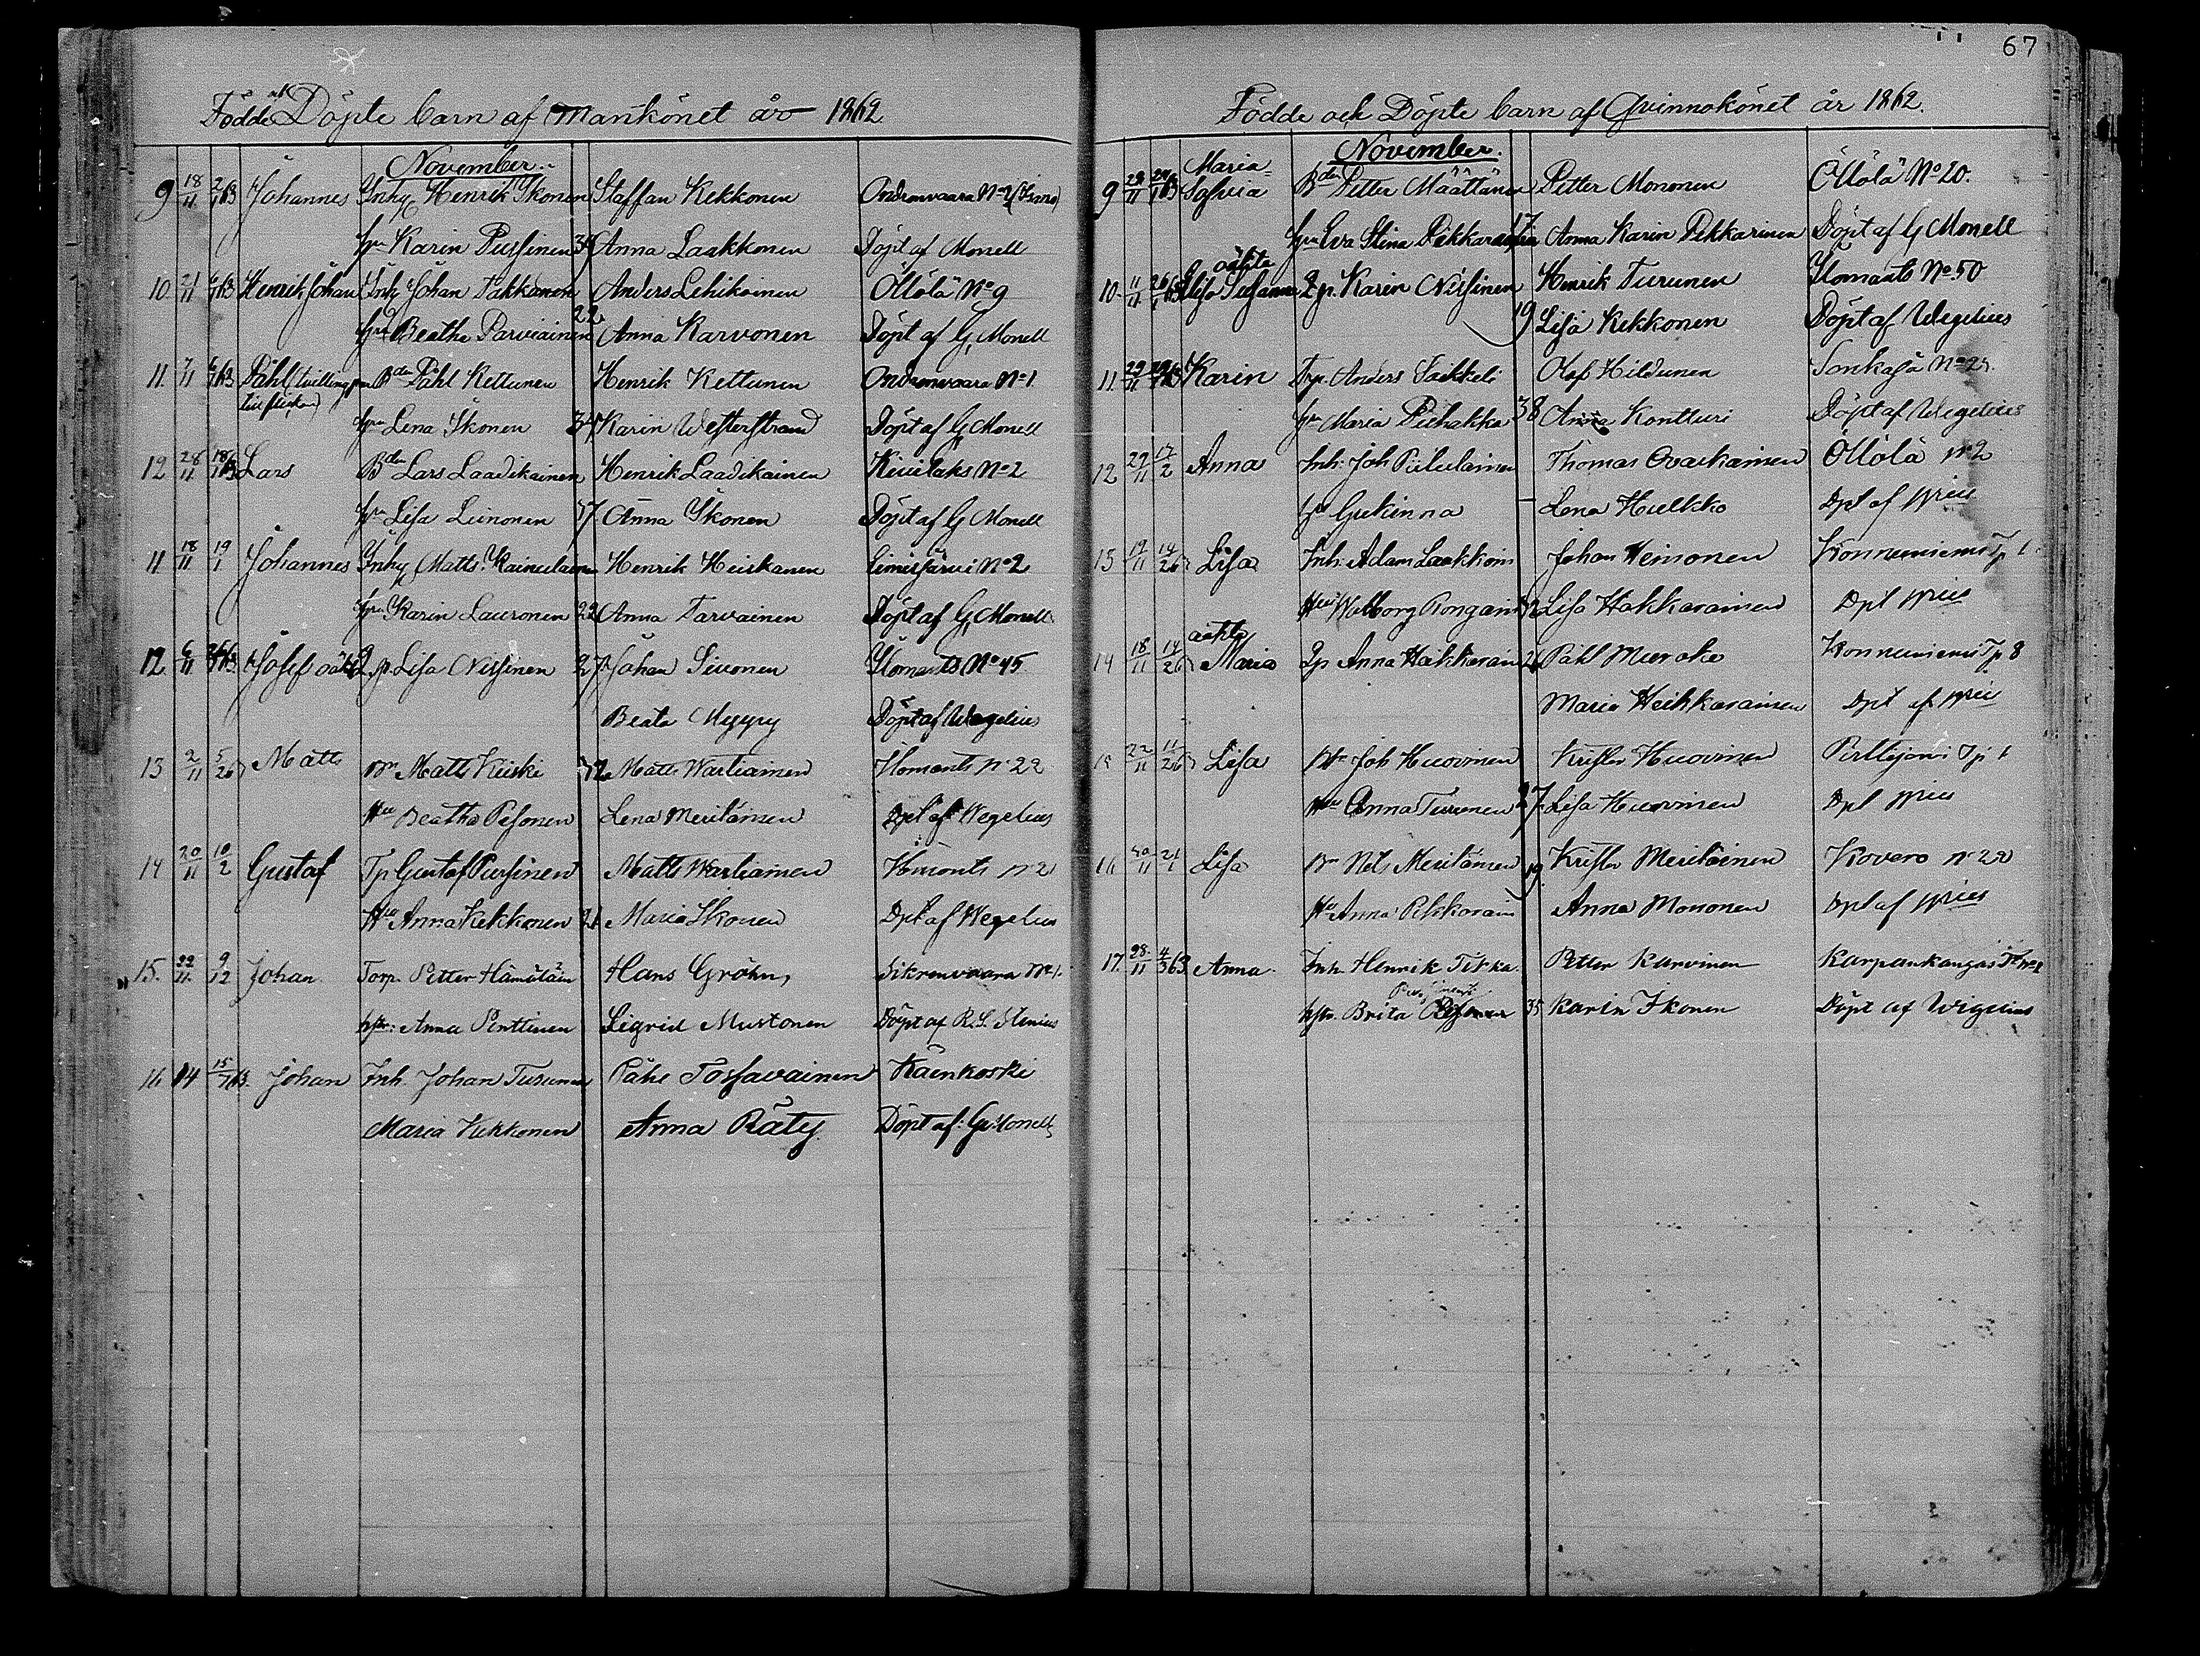 67
Födde och Döpte barn af Mankönet år 1862
November.
9 18/11 2/1 63 Johannes Inhy Henrik Ikonen Staffan Kekkonen Ondronvaara No 2
hu Karin Pussinen 34 Anna Laakkonen Döpt af Monell
10 21/11 6/1 63 Henrik Johan Inhy Johan Pakkanen Anders Lehikoinen Öllölä No 9
hu Beatha Parviainen 22 Anna Karvonen Döpt af G Monell
11. 7/11 6/1 63 Påhl (tvilling Bden Påhl Kettunen Henrik Kettunen Ondronvaara No 1.
hu Lena Ikonen 34 Karin Westerstrand Döpt af G Monell
12 28/11 18/1 63 Lars Bden Lars Laadikainen Henrik Laadikainen No 2
hu Lisa Leinonen 37 Anna Ikonen Döpt af G Monell
11 18/11 19/1 Johannes Inhy Matts Kainulainen Henrik Heiskanen No 2
hu Karin Lauronen 22 Anna Tarvainen Döpt af G Monell
12. 6/11 63 Josef oäkta Qp. Lisa Nissinen 27 Johan Sivonen Ilomants No 45
Beata Myyry Döpt af Wegelius
13 2/11 5/26 Matts Bn Matts Kiiski 32 Matts Wartiainen Ilomants No 22
Hu Beatha Pesonen Lena Meriläinen Dpt af Wegelius
14 20/11 10/2 Gustaf Tp Gustaf Pussinen Matts Wartiainen Ilomants No 2
Hu Anna Kekkonen 21 Maria Ikonen Dpt af Wegelius
15. 22/11 9/12 Johan Torp. Petter Hämäläin Hans Gröhn, Sikrenvaara No 1.
hstr: Anna Penttinen Sigrid Mustonen Döpt af R. S. Stenius
16 14 15/1 63. Johan Inh. Johan Turunen Påhl Tossavainen Käenkoski
Maria Kekkonen Anna Räty. Döpt af: G. Monell
Födde och Döpte barn af Qvinnokönet år 1862.
November.
9 23/11 63 Maria Sophia Bden Petter Määttänen Petter Mononen Öllölä No 20.
hu Eva Stina Pikkarainen 17 Anna Karin Pikkarinen Döpt af G Monell
10. 11/11 26/1 63 oäkta Lisa Susanna Qp. Karin Nissinen Henrik Turunen Ilomants No 50
19 Lisa Kekkonen Döpt af Wegelius
11. 22/11 63 Karin Trp. Anders Saikkeli Olof Hildunen Sonkaja No 25.
hu Maria Piehakka 38 Anna Kontturi Döpt af Wegelius
12 29/11 17/2 Anna Inh: Joh Piilulainen Thomas Ovaskainen Öllölä No 2
hu Lena Hulkko Dpt af
13 19/11 14/26 Lisa Inh: Adam Laakkoin Johan Heinonen Konnunniemi Tp 1
Hu Walborg Rongain 32 Lisa Hakkarainen Dpt
14 18/11 14/26 oäkta Maria Qp Anna Heikkarain 26 Påhl Konnunniemi Tp 8
Maria Heikkarainen Dpt af
15 22/11 11/26 Lisa Bn Joh Huovinen Krister Huovinen Tp 1
Hu Anna Turunen 27 Lisa Huovinen Dpt
16 30/11 21/1 Lisa Bn Nils Meriläinen 19 Krister Meriläinen Kovero No 22
Hu Anna Pikkarain Anna Mononen Dpt af
17. 28/11 63 Anna. Inh. Henrik Tirka. Petter Karvinen Karpankangas
hstr. Brita 35 Karin Ikonen Döpt af Wigelius